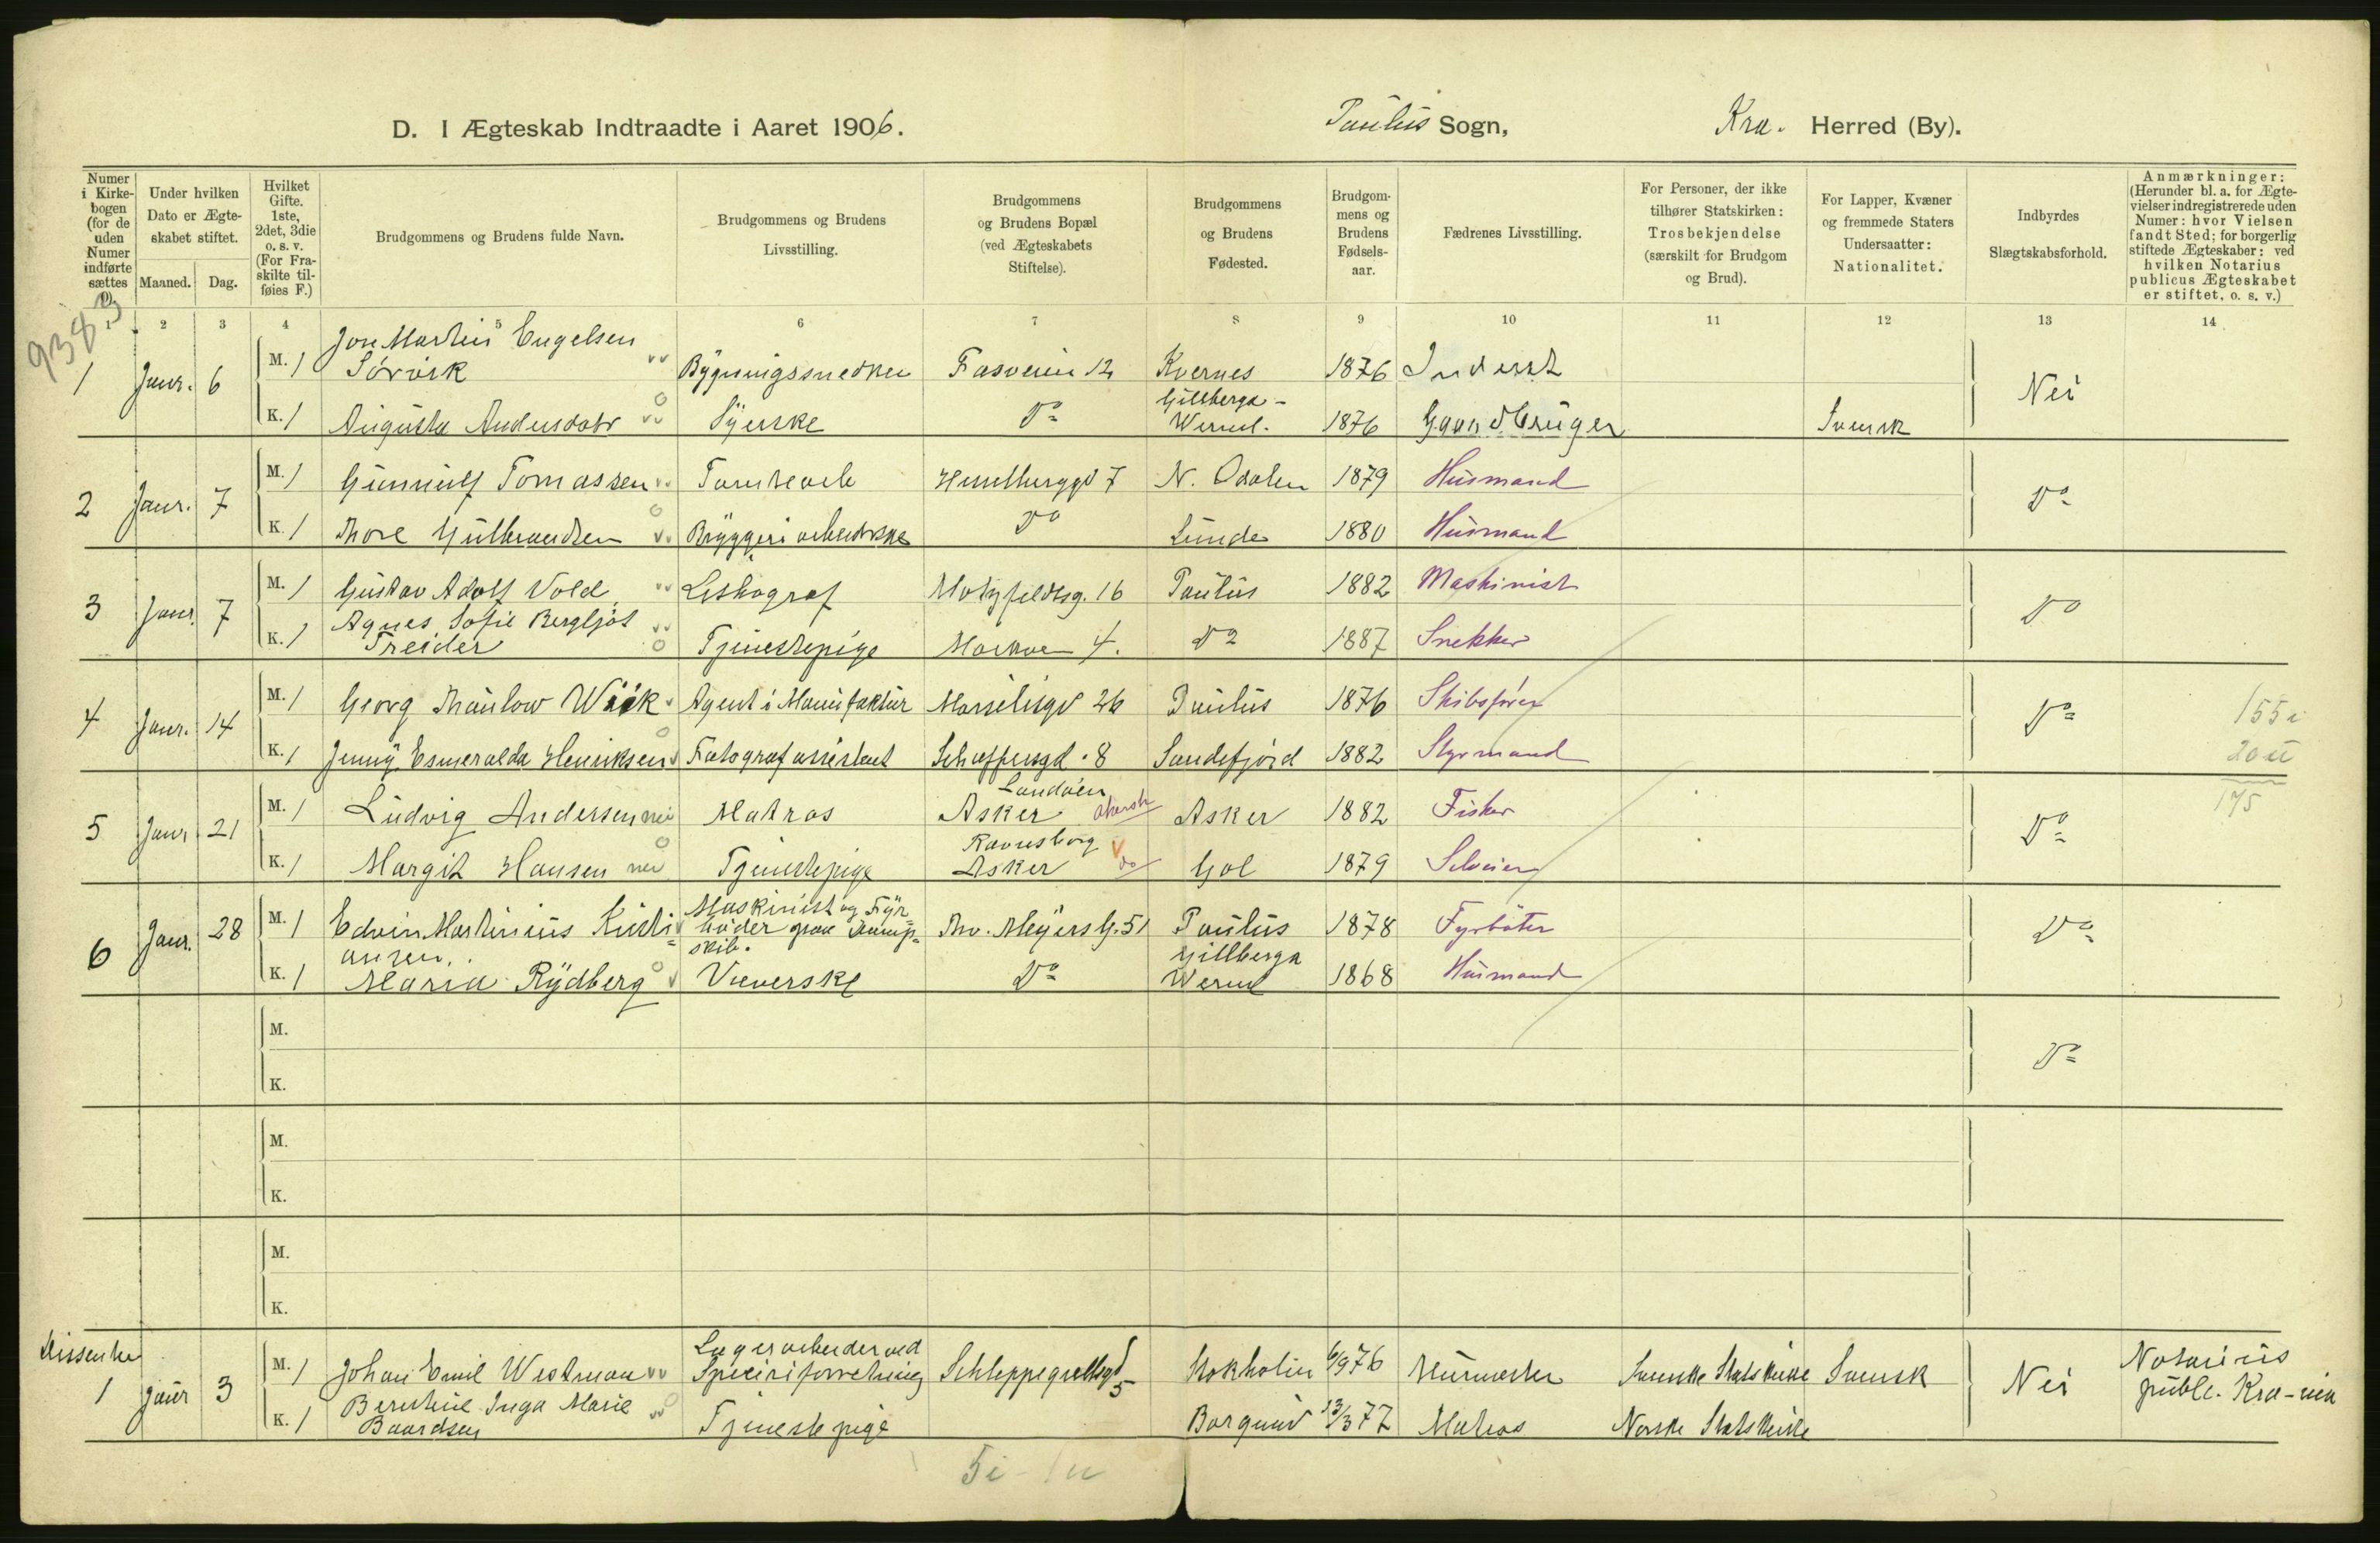 D. I Ægteskab Indtraadte i Aaret 1906. Paulus Sogn, Kra. Herred (By).
Numer i Kirkebogen (for de uden Numer indførte sættes 0).
Under hvilken Dato er Ægteskabet stiftet.
Maaned. Dag.
Hvilket Gifte. 1ste, 2det, 3die o. s. v. (For Fraskilte tilføies F.)
Brudgommens og Brudens fulde Navn.
Brudgommens og Brudens Livsstilling.
Brudgommens og Brudens Bopæl (ved Ægteskabets Stiftelse).
Brudgommens og Brudens Fødested.
Brudgommens og Brudens Fødselsaar.
Fædrenes Livsstilling.
For Personer, der ikke tilhører Statskirken: Trosbekjendelse (særskilt for Brudgom og Brud).
For Lapper, Kvæner og fremmede Staters Undersaatter: Nationalitet.
Indbyrdes Slægtskabsforhold.
Anmærkninger: (Herunder bl. a. for Ægtevielser indregistrerede uden Numer: hvor Vielsen fandt Sted; for borgerlig stiftede Ægteskaber: ved hvilken Notarius publicus Ægteskabet er stiftet, o. s. v.)
1 2 3 4 5 6 7 8 9 10 11 12 13 14
9383
1 Janr. 6 M. 1 Jon Martin Engelsen Sørvik Bygningssnedker Fasveien 12 Kvernes 1876 Inderst Nei
K. 1 Augusta Andersdotr Syerske Do Gillberga - Werml. 1876 Gaardbruger Svensk
2 Janr. 7 M. 1 Gunnulf Tomassen Tomtearb Heimdberggd 7 N. Odalen 1879 Husmand Do
K. 1 Thore Gulbrandsen Bryggeriarbeiderske Do Lunde 1880 Husmand
3 Janr. 7 M. 1 Gustav Adolf Vold Lithograf Motzfeldtsg. 16 Paulus 1882 Maskinist Do
K. 1 Agnes Sofie Bergljot Treider Tjenestepige Markve 4. Do 1887 Snekker
4 Janr. 14 M. 1 Georg Thaulow Wiik Agent i Manufaktur Marselisgd 26 Paulus 1876 Skibsfører Do
K. 1 Jenny Esmeralda Henriksen Fotografassistent 8 Sandefjord 1882 Styrmand
155 i
20 u
175
5 Janr 21 M. 1 Ludvig Andersen nei Matros Landøen Asker Asker 1882 Fisker Do
K. 1 Margit Hansen nei Tjenestepige Ravnsborg Asker do Gol 1879 Selveier
6 Janr. 28 M. 1 Edvin Martinius Kristiansen Maskinist og Fyrbøder paa Dampskib. Thv. Meyers G. 51 Paulus 1878 Fyrbøter Do
K. 1 Maria Rydberg Væverske Do Gillberga Werml 1868 Husmand
M.
K. Do
M.
K.
M.
K.
Dissenter
1 Janr 3 M. 1 Johan Emil Westman Lagerarbeider ved Speceriforretning Schleppegrellsgd 5 Stokholm 6/9 76 Murmester Svenske Statskirke Svensk Nei Notarius publ. Kra-nia
K. 1 Berntine Inga Marie Baardsen Tjenestepige Borgund 13/3 77 Matros Norske Statskirke
5 i - 1 u